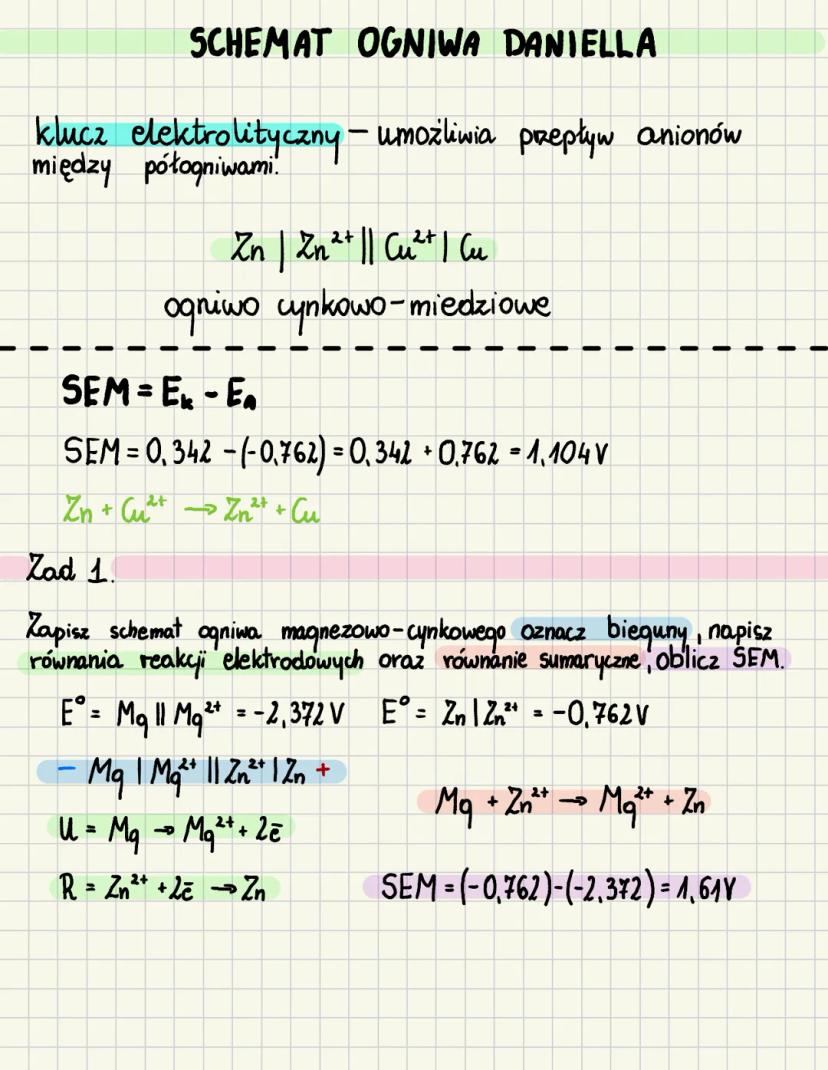 SCHEMAT OGNIWA DANIELLA
klucz elektrolityczny – umożliwia przepływ anionów
między półogniwami.
Zn | Zn²⁺ || Cu²⁺ | Cu
ogniwo cynkowo-miedziowe
SEM = Eₖ - Eₐ
SEM = 0,342 - (-0,762) = 0,342 + 0,762 = 1,104 V
Zn + Cu²⁺ → Zn²⁺ + Cu
Zad 1.
Zapisz schemat ogniwa magnezowo-cynkowego oznacz bieguny, napisz
równania reakcji elektrodowych oraz równanie sumaryczne, oblicz SEM.
E° = Mg || Mg²⁺ = -2,372 V E° = Zn | Zn²⁺ = -0,762 V
- Mg | Mg²⁺ || Zn²⁺ | Zn +
Mg + Zn²⁺ → Mg²⁺ + Zn
U = Mg → Mg²⁺ + 2ē
R = Zn²⁺ + 2ē → Zn SEM = (-0,762) - (-2,372) = 1,61 V